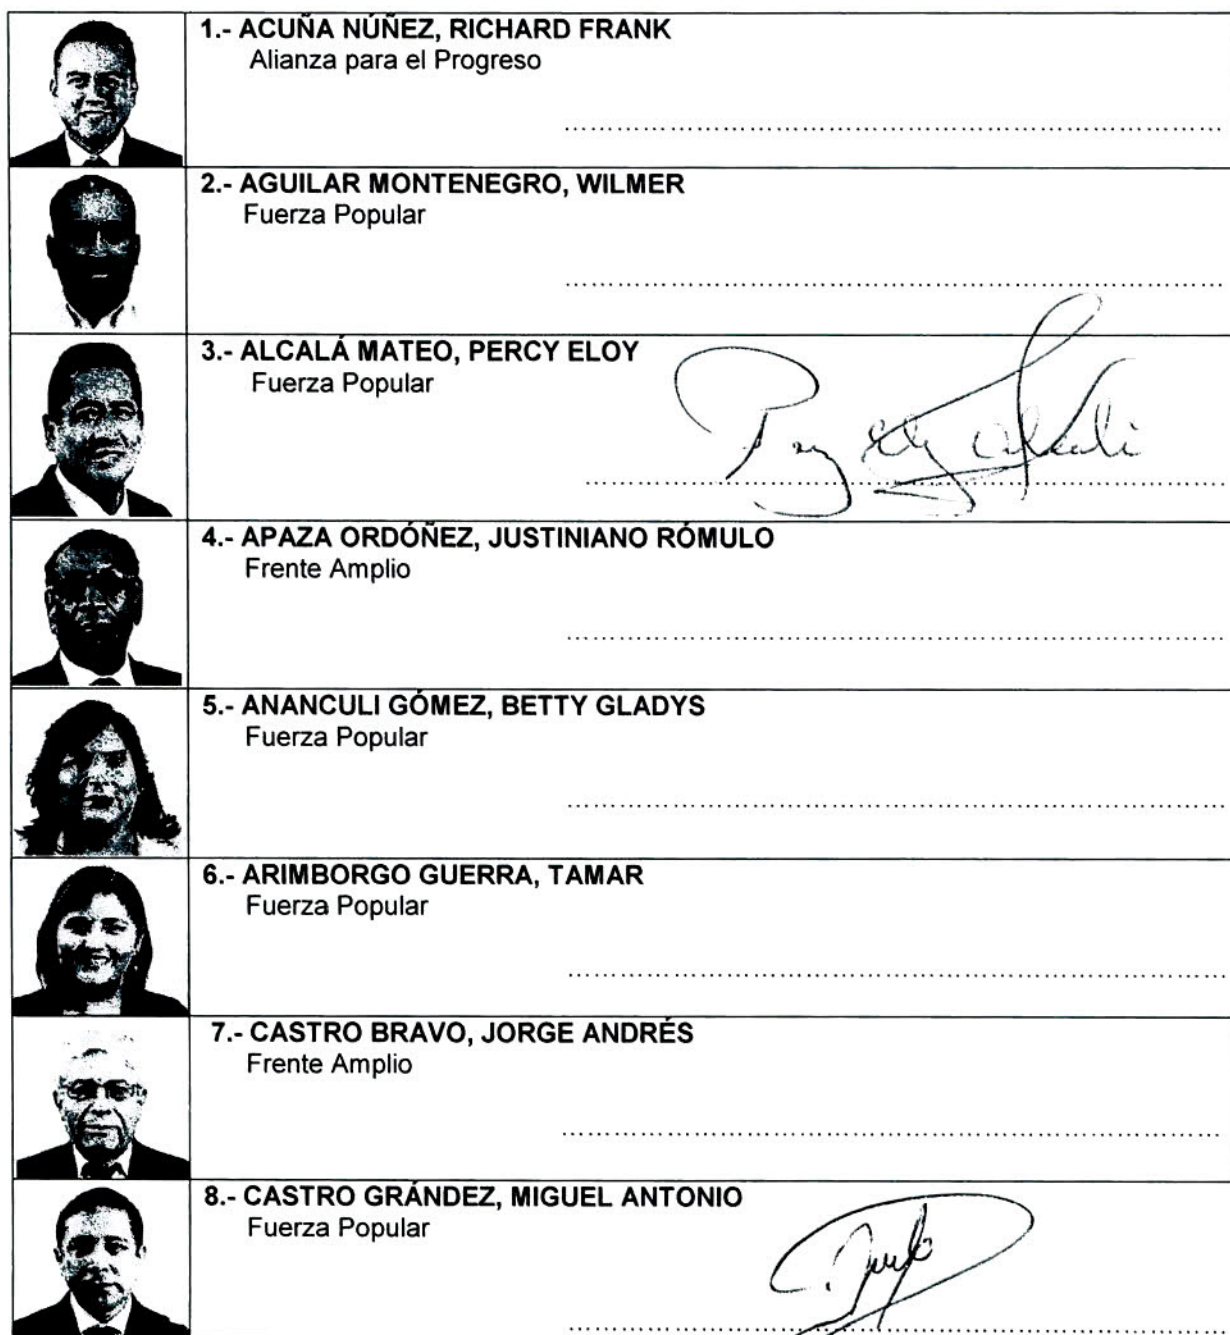 1.- ACUÑA NÚÑEZ, RICHARD FRANK
Alianza para el Progreso
2.- AGUILAR MONTENEGRO, WILMER
Fuerza Popular
3.- ALCALÁ MATEO, PERCY ELOY
Fuerza Popular
4.- APAZA ORDÓÑEZ, JUSTINIANO RÓMULO
Frente Amplio
5.- ANANCULI GÓMEZ, BETTY GLADYS
Fuerza Popular
6.- ARIMBORGO GUERRA, TAMAR
Fuerza Popular
7.- CASTRO BRAVO, JORGE ANDRÉS
Frente Amplio
8.- CASTRO GRÁNDEZ, MIGUEL ANTONIO
Fuerza Popular